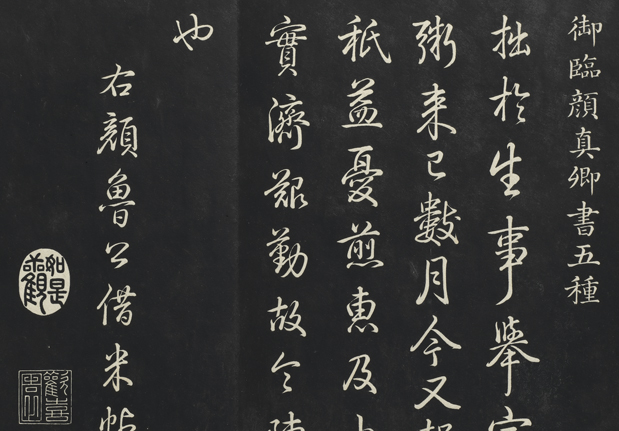 御臨顔真卿書五種
拙於生事舉家
粥来已數月今又
秖益憂煎惠及
實濟艱勤故令
也
右顔魯公借米帖
如是觀